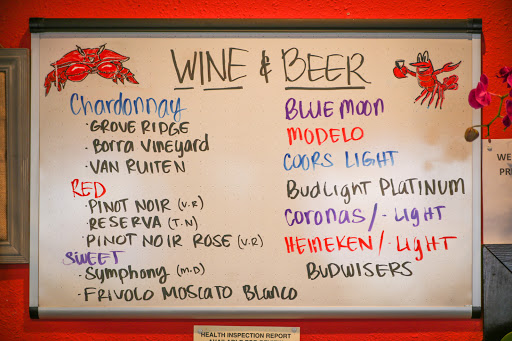 WINE & BEER
Chardonnay
· GROVE RIDGE
· Borra Vineyard
· VAN RUITEN
RED
· PINOT NOIR (V.R)
· RESERVA (T.N)
· PINOT NOIR ROSE (V.R)
SWEET
· Symphony (M.D)
· FRIVOLO MOSCATO BLANCO
BLUE MOON
MODELO
COORS LIGHT
BudLIGHT PLATINUM
CORONAS/ · LIGHT
HEINEKEN/ · LIGHT
BUDWISERS
WE
PR
HEALTH INSPECTION REPORT